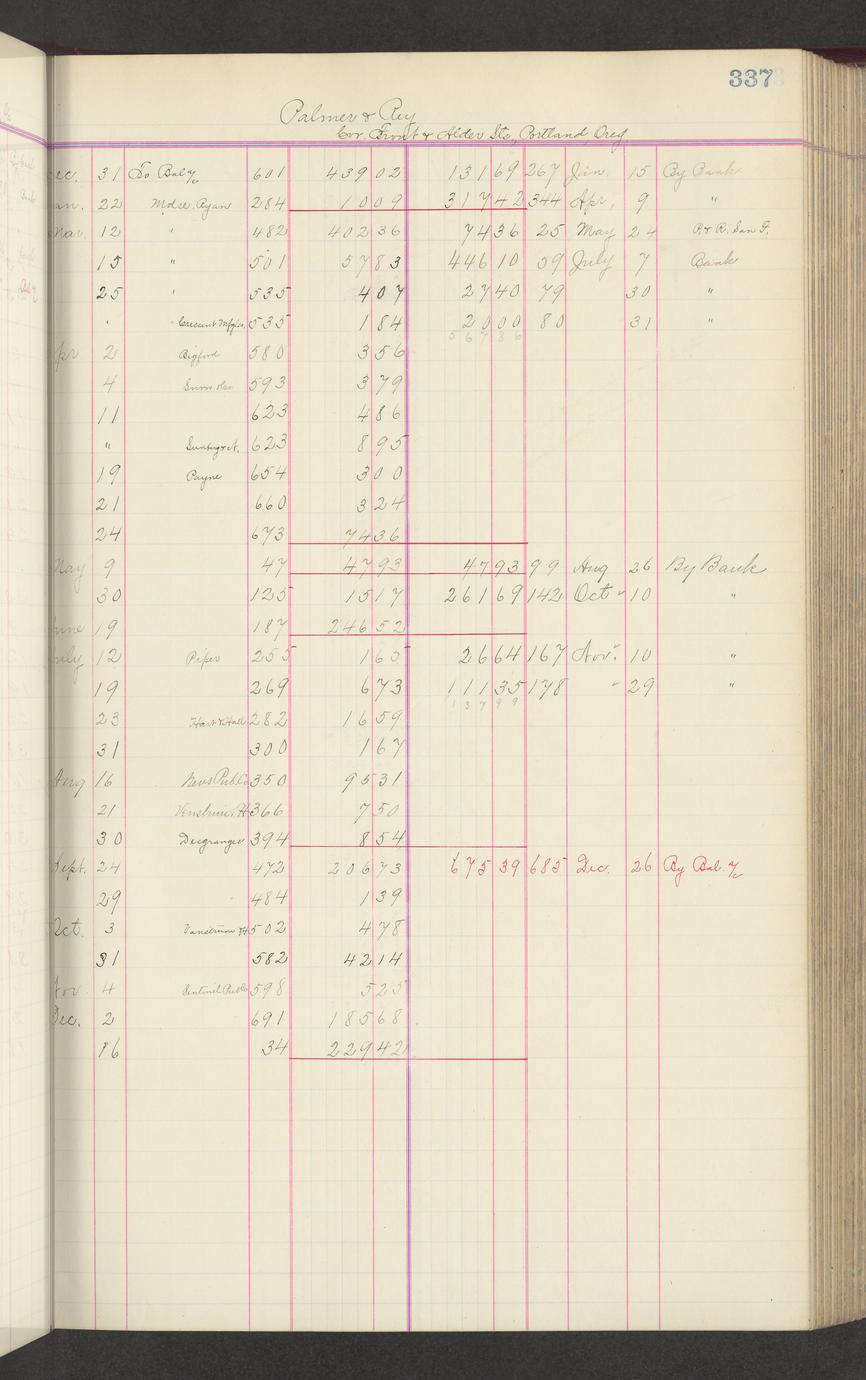 337
Palmer & Rey
Cor. Front & Alder Sts, Portland Oreg
ec. 31 To Bal a/c 601 439 02 131 69 267 Jan. 15 By Bank
an. 22 Mdse. Ryan 284 10 09 317 42 344 Apr. 9 "
Mar. 12 " 482 402 36 74 36 25 May 24 P. & R. San F.
15 " 501 57 83 446 10 59 July 7 Bank
25 " 535 4 07 27 40 79 30 "
" " Crescent Mfg Co. 535 1 84 20 00 80 31 "
567 86
Apr 2 Bigford 580 3 56
4 593 3 79
11 623 4 86
" 623 8 95
19 Payne 654 3 00
21 660 3 24
24 673 74 36
May 9 47 47 93 47 93 99 Aug 26 By Bank
30 125 15 17 261 69 142 Oct 10 "
June 19 187 246 52
July 12 Piper 255 1 65 26 64 167 Nov. 10 "
19 269 6 73 111 35 178 " 29 "
137 99
23 Hart & Hall 282 16 59
31 300 1 67
Aug 16 News Pub Co 350 95 31
21 366 7 50
30 Desgranges 394 8 54
Sept. 24 472 206 73 675 39 685 Dec. 26 By Bal. a/c
29 484 1 39
Oct. 3 502 4 78
31 582 42 14
Nov. 4 Sentinel Pub Co 598 5 25
Dec. 2 691 185 68
16 34 229 42